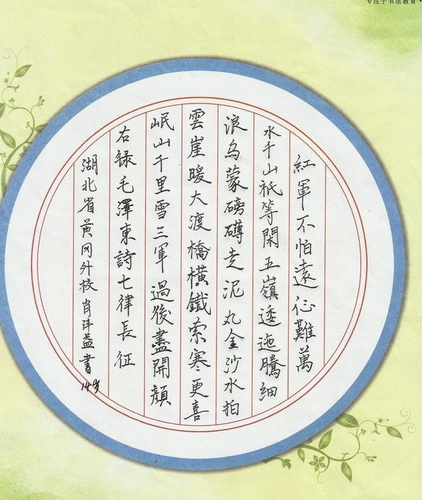 专注于书法教育
紅軍不怕遠征難萬
水千山祇等閑五嶺逶迤騰細
浪烏蒙磅礴走泥丸金沙水拍
雲崖暖大渡橋橫鐵索寒更喜
岷山千里雪三軍過後盡開顏
右錄毛澤東詩七律長征
湖北省黄冈外校肖益書
14岁